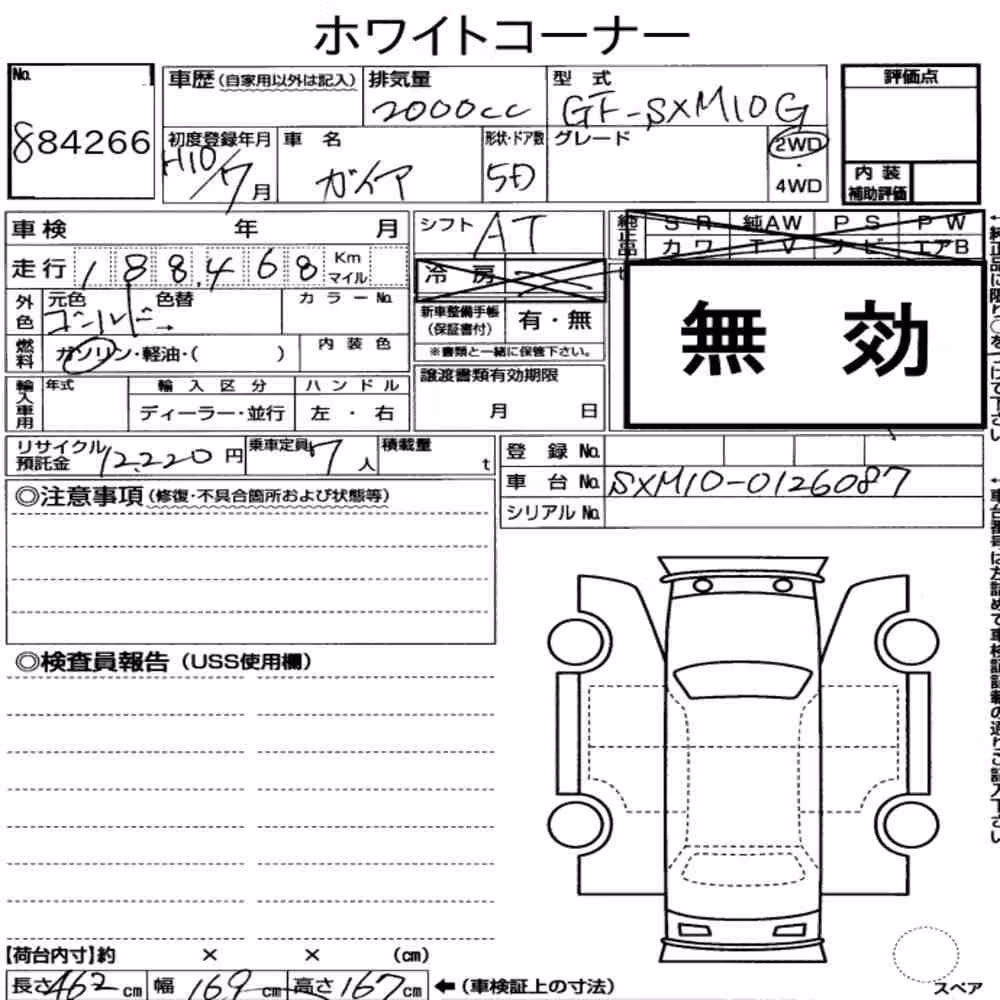 ホワイトコーナー
No.
884266
車歴(自家用以外は記入)
排気量
2000cc
型 式
GF-SXM10G
評価点
初度登録年月
H10/7月
車 名
ガイア
形状・ドア数
5D
グレード
2WD
・
4WD
内 装
補助評価
車検 年 月
シフト AT
純正品
S R 純AW P S P W
カワ T V ナビ エアB
走行 188,468 Km
マイル
冷 房
無 効
外色
元色 色替
ゴールド→
カラーNo.
新車整備手帳
(保証書付)
有・無
※書類と一緒に保管下さい。
燃料
ガソリン・軽油・( )
内装色
輸入車用
年式
輸入区分
ハンドル
ディーラー・並行
左・右
譲渡書類有効期限
月 日
リサイクル
預託金 12,220円
乗車定員 7人
積載量 t
登 録 No.
車 台 No. SXM10-0126087
シリアルNo.
◎注意事項(修復・不具合箇所および状態等)
◎検査員報告(USS使用欄)
【荷台内寸】約 × × (cm)
長さ462cm 幅169cm 高さ167cm ←(車検証上の寸法)
スペア